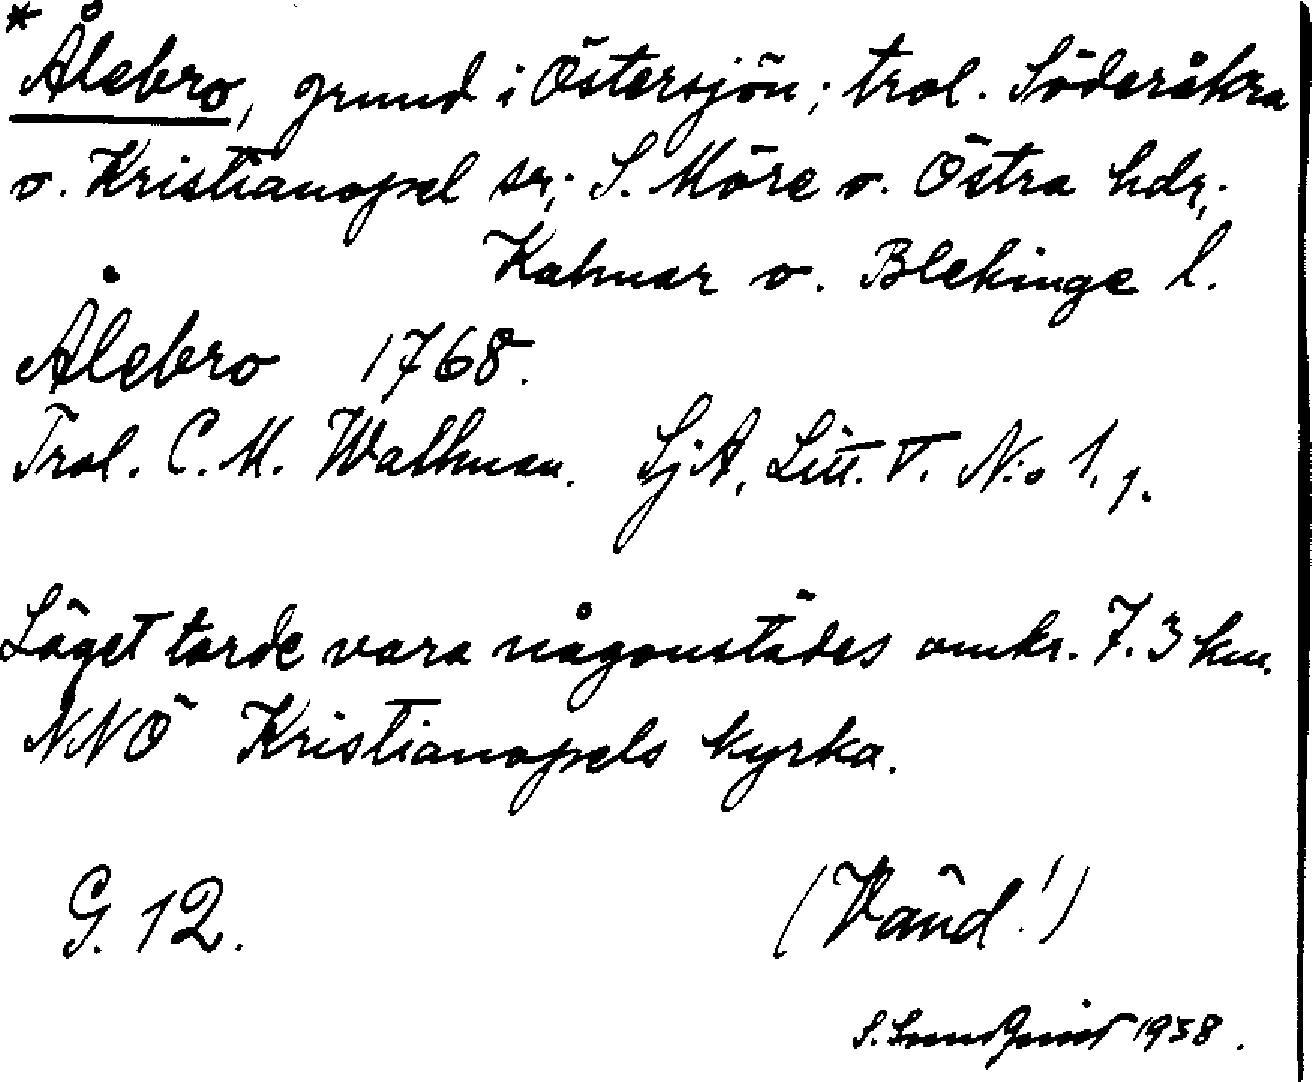 * Ålebro, grund i Östersjön; trol. Söderåkra
o. Kristianopel sr; S. Möre o. Östra hdr;
Kalmar o. Blekinge l.
Ålebro 1768.
Trol. C. M. Wallman. SjA, Litt. T. N:o 1, 1.
Läget torde vara någonstädes omkr. 7.3 km.
NNÖ Kristianopels kyrka.
G. 12. (Vänd!)
S. Sundquist 1938.